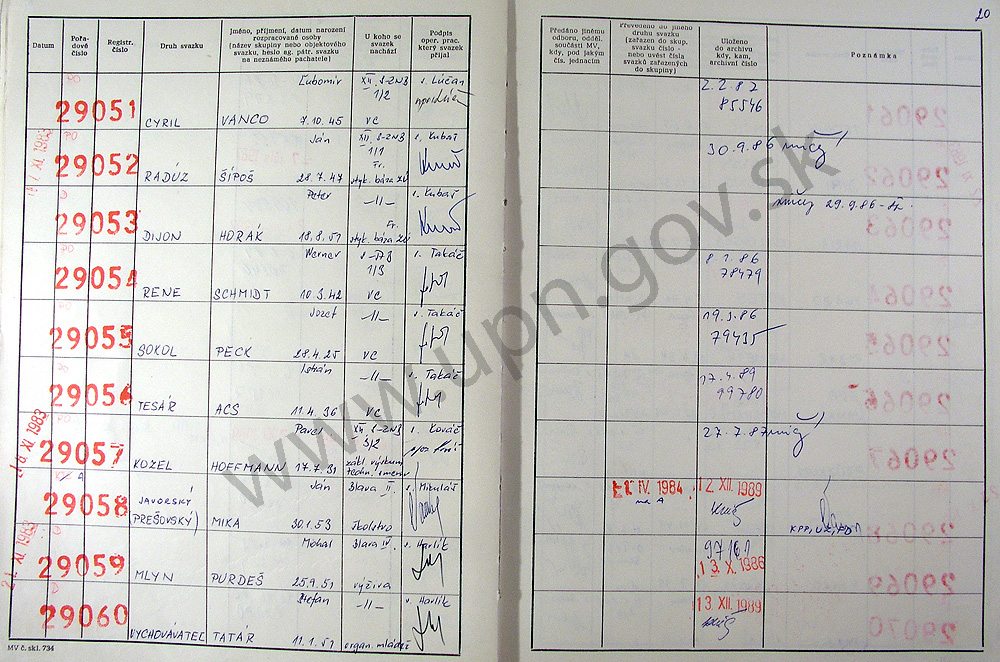 Datum
Pořadové číslo
Registr. číslo
Druh svazku
Jméno, příjmení, datum narození
rozpracované osoby
(název skupiny nebo objektového
svazku, heslo ag. pátr. svazku
na neznámého pachatele)
U koho se
svazek
nachází
Podpis
oper. prac.
který svazek
přijal
Předáno jinému
odboru, odděl.
součásti MV,
kdy, pod jakým
čís. jednacím
Převedeno do jiného
druhu svazku
(zařazen do skup.
svazku číslo -
nebo uvést čísla
svazků zařazených
do skupiny)
Uloženo
do archivu
kdy, kam,
archivní číslo
Poznámka
20
PO
Ľubomír XII. S-ZNB s. Lúčan
29051 1/2
CYRIL VANCO 7.10.45 VC
2.2.87
85546
PO
Ján XII. S-ZNB s. Kubaš
29052 1/1
RADÚZ ŠÍPOŠ 28.7.47 styk. báza
30.9.86
Peter -||- s. Kubaš
29053
DIJON HORÁK 18.8.51 styk. báza
29.9.86
PO
Werner s. Takáč
29054 1/3
RENE SCHMIDT 10.3.42 VC
8.1.86
78479
Jozef -||- s. Takáč
29055
SOKOL PECK 28.4.25 VC
19.3.86
79435
-||- s. Takáč
29056
TESÁR ACS 11.4.36 VC
17.4.89
99780
Pavel XII S-ZNB s. Kováč
29057 3/2
KOZEL HOFFMANN 17.7.31 zákl. výskum
27.7.87
A
Ján Blava II. s. Mikuláš
29058 JAVORSKÝ
PREŠOVSKÝ) MIKA 30.1.53 školstvo
IV. 1984
na A
12. XII. 1989
KPP, UZ, PO
Blava IV. s. Havlik
29059
MLYN PURDEŠ 25.9.51 výživa
97161
13. X. 1986
Štefan -||- s. Havlik
29060
VYCHOVÁVATEĽ TATÁR 11.1.51 organ. mládež
13. XII. 1989
XI. 1983
XI. 1983
XI. 1983
MV č. skl. 734
www.upn.gov.sk